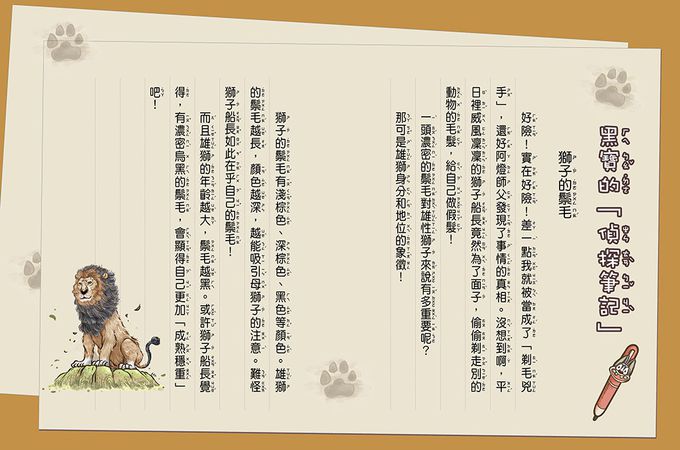 黑寶的「偵探筆記」
獅子的鬃毛
好險！實在好險！差一點我就被當成了「剃毛兇
手」，還好阿燈師父發現了事情的真相。沒想到啊，平
日裡威風凜凜的獅子船長竟然為了面子，偷偷剃走別的
動物的毛髮，給自己做假髮！
一頭濃密的鬃毛對雄性獅子來說有多重要呢？
那可是雄獅身分和地位的象徵！
獅子的鬃毛有淺棕色、深棕色、黑色等顏色。雄獅
的鬃毛越長，顏色越深，越能吸引母獅子的注意。難怪
獅子船長如此在乎自己的鬃毛！
而且雄獅的年齡越大，鬃毛越黑。或許獅子船長覺
得，有濃密烏黑的鬃毛，會顯得自己更加「成熟穩重」
吧！